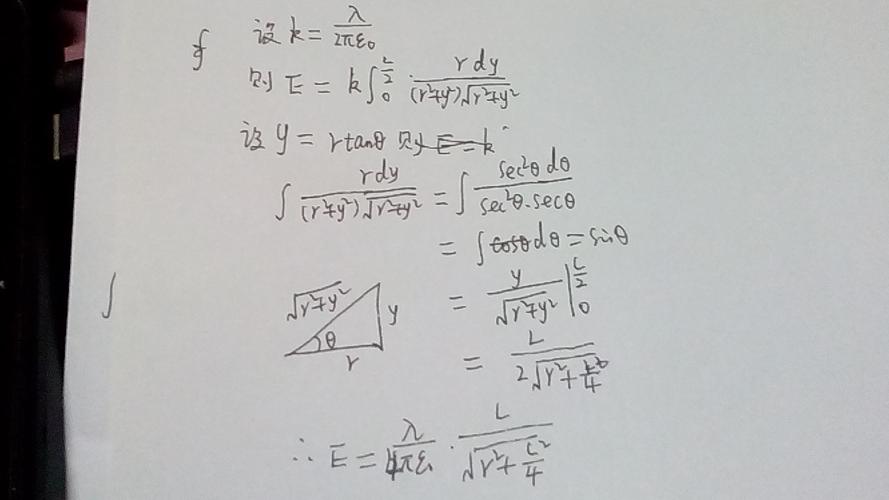 设 k = λ/2πε₀
则 E = k∫₀^(L/2) rdy/((r²+y²)√(r²+y²))
设 y = rtanθ 则 E = k
∫ rdy/((r²+y²)√(r²+y²)) = ∫ sec²θdθ/(sec²θ·secθ)
= ∫cosθdθ = sinθ
√(r²+y²) y θ r
= y/√(r²+y²) |₀^(L/2)
= L/(2√(r²+L²/4))
∴ E = λ/4πε₀ · L/√(r²+L²/4)